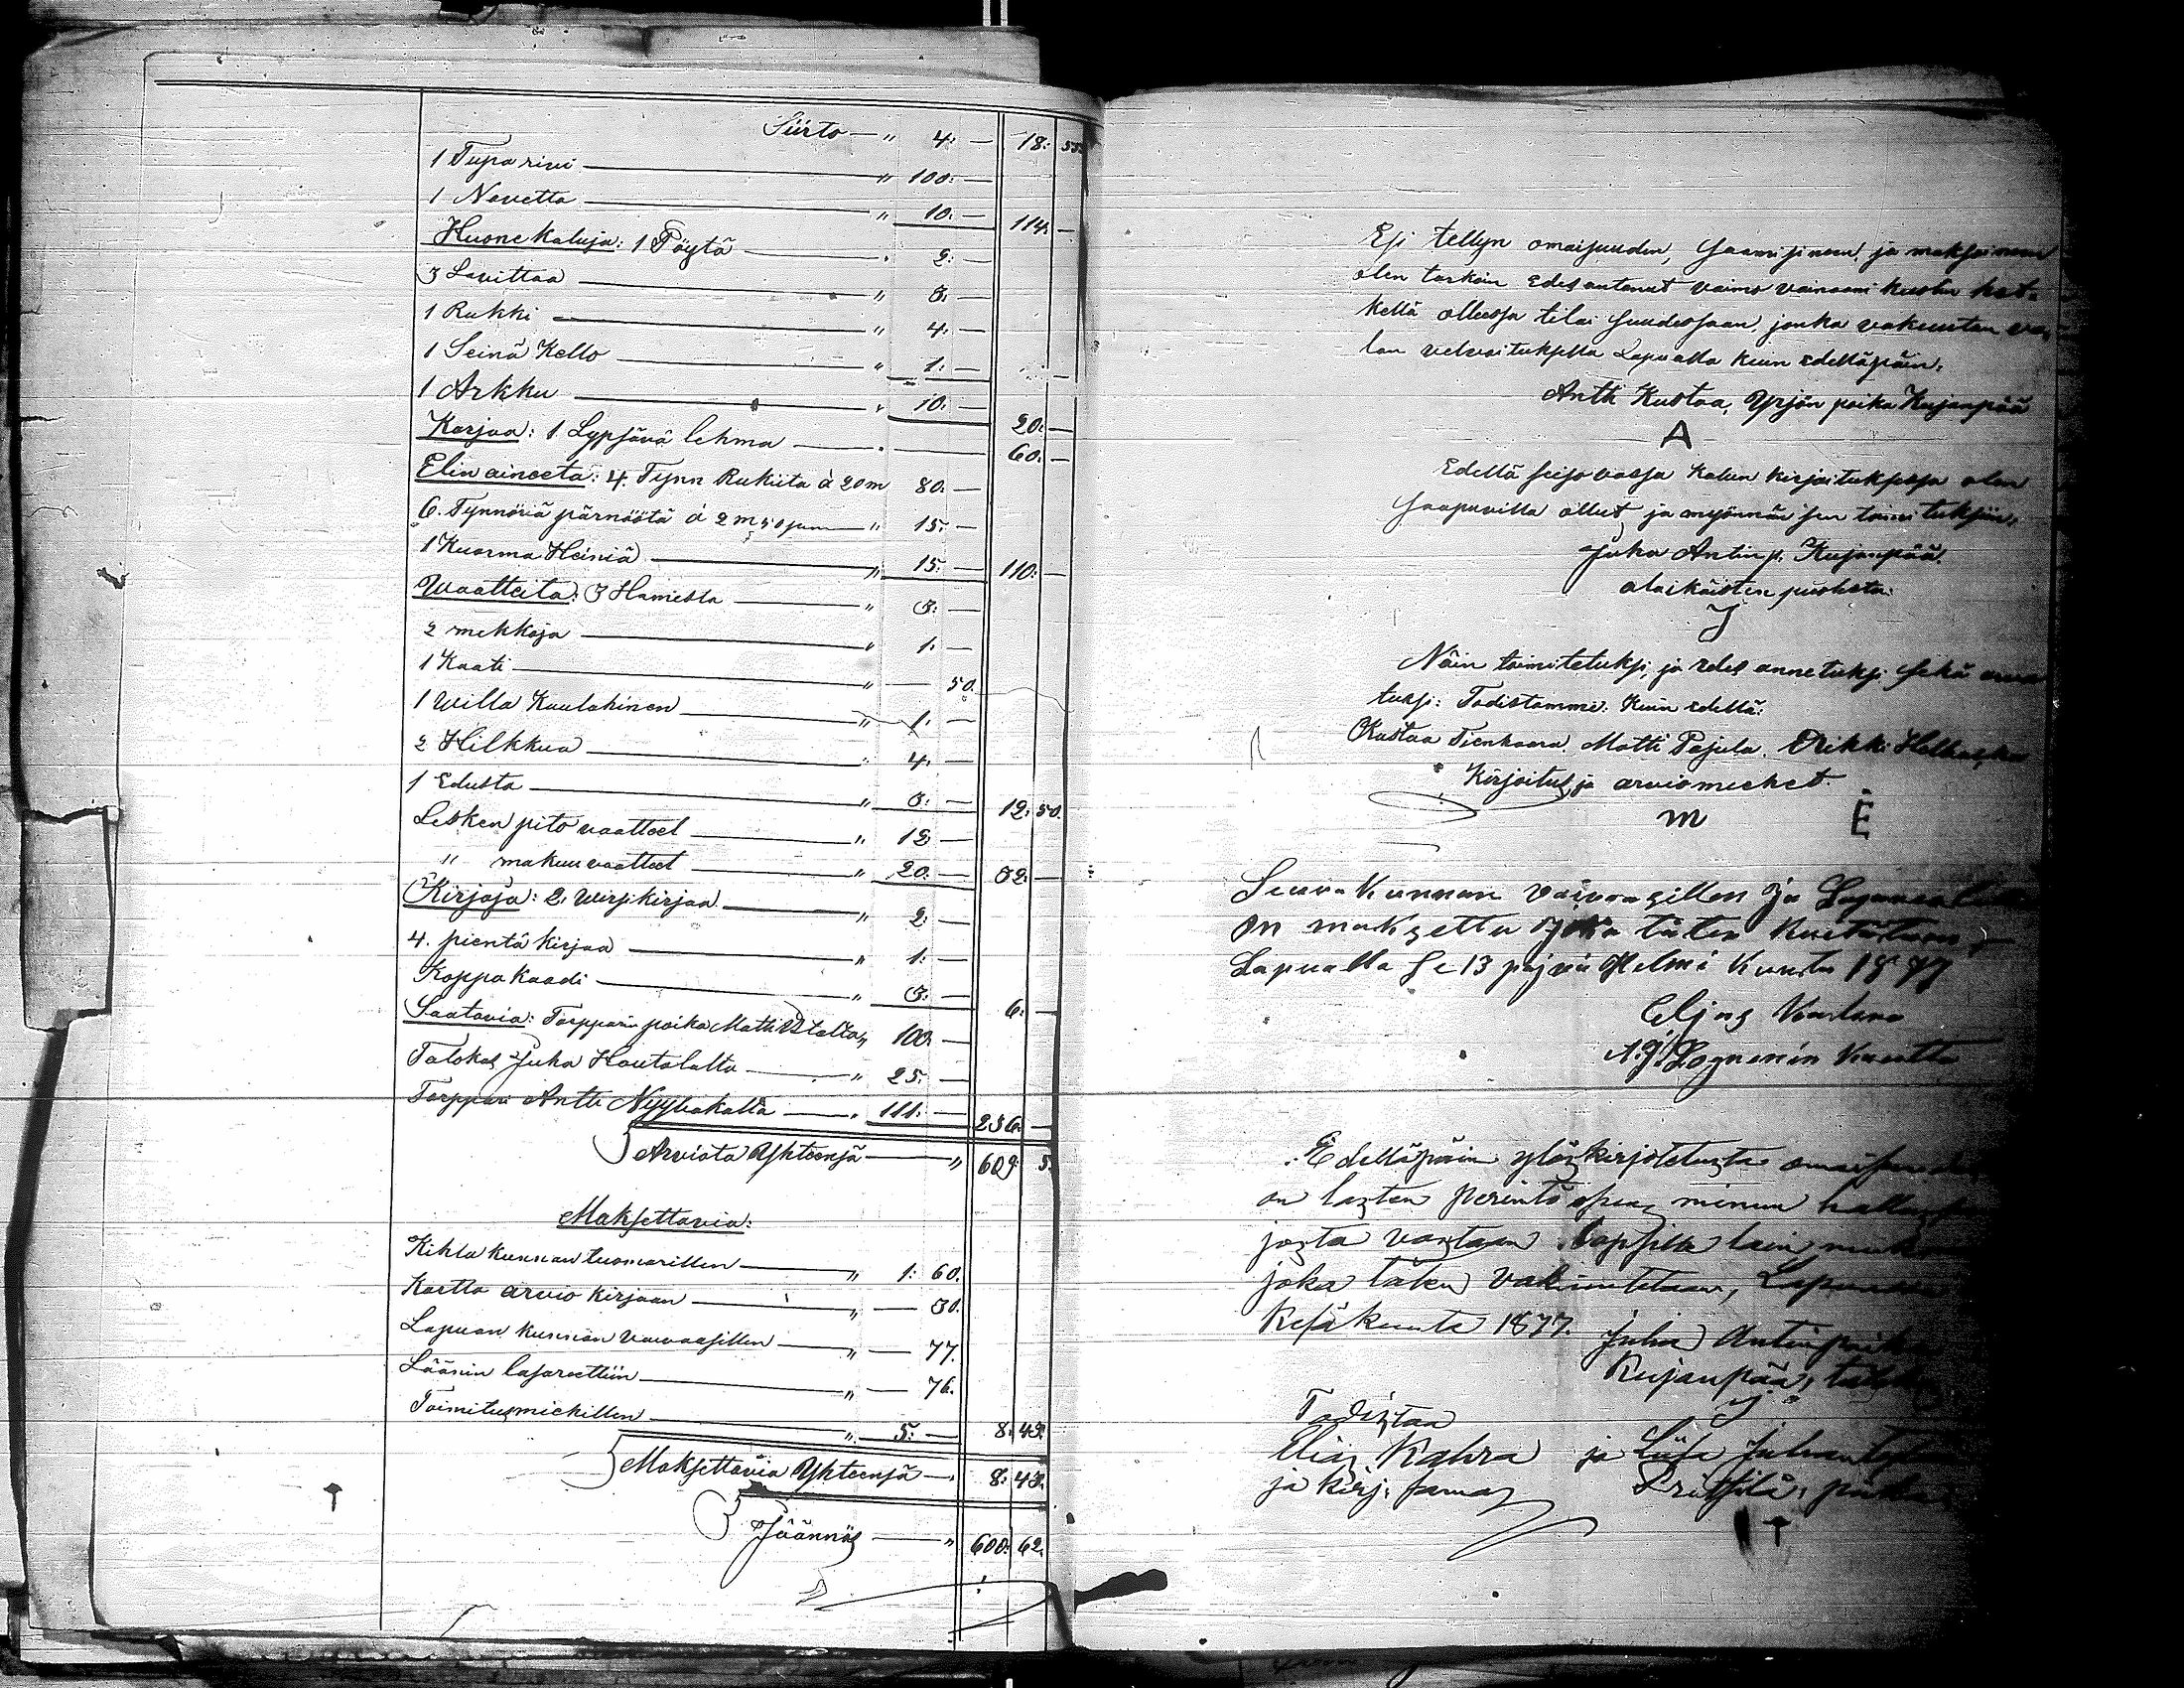 Siirto — " 4: — 18: 55
1 Tupa rivi — " 100: —
1 Navetta — " 10: — 114: —
Huonekaluja: 1 Pöytä — " 2: —
3 Lavittaa — " 3: —
1 Rukki — " 4: —
1 Seinä Kello — " 1: —
1 Arkku — " 10: — 20: —
Karjaa: 1 Lypsävä lehma — 60: —
Elin aineeta: 4. Tynn Rukiita á 20 m 80: —
6. Tynnöriä pärnöötä á 2 m 50 pnni — " 15: —
1 Kuorma Heiniä — " 15: — 110: —
Waatteita: 3 Hamesta — " 3: —
2 mekkoja — " 1: —
1 Kaati — " — 50.
1 Willa Kaulahinen — " 1: —
2 Hilkkua — " 4: —
1 Edusta — " 3: — 12: 50.
Lesken pito vaatteet — " 12 —
" makuuvaatteet — " 20: — 32: —
Kirjoja: 2. Wirsikirjaa — " 2: —
4. pientä kirjaa — " 1: —
Koppa kaadi — " 3: — 6: —
Saatavia: Torpparin poika Matti " 100: —
Talokas Juha Hautalalta — " 25: —
Torppari Antti — " 111: — 236: —
Arviota Yhteensä — " 609: 5
Maksettavia:
Kihlakunnan tuomarillen — " 1: 60.
Kartta arvio kirjaan — " — 30.
Lapuan kunnan vaivaasillen — " — 77.
Läänin lasareettiin — " — 76.
Toimitusmiehillen — " 5: — 8: 43.
Maksettavia Yhteensä — " 8: 43.
Jäännös — " 600: 62.
Esi tellyn omaisuuden, Saamisineen, ja maksoineen
olen tarkoin Edesantanut vaimo vainaani kuolin het-
kellä ollessa tilai suudessaan, jonka vakuutan va-
lan velvoituksella Lapualla kuin edelläpäin.
Antti Kustaa, Yrjön poika Kujanpää
A
Edellä seisovassa kalun kirjoituksessa olen
saapuvilla ollut, ja myönnän sen toimituksiin,
Juha Antin p. Kujanpää.
alaikäisten puolesta.
J
Näin toimitetuksi, ja edes annetuksi sekä
tuksi: Todistamme. Kuin edellä:
Kustaa Tienhaara. Matti Pajula. Erikki
Kirjoitus ja arviomiehet.
m E
Seurakunnan vaivasillen ja
On maksettu joka täten kuitataan
Lapualla se 13 päjvä Helmi kuuta 1877
Eljas
Edelläpäin ylöskirjotetusta omaisuuden
on lasten perintö osa minun
josta vastaan lapsilla lain
joka täten vakuutetaan, Lapualla
Kesäkuuta 1877. Juha Antinpoika
Kujanpää,
J
Todistaa
Elias Kahra ja Liisa
ja kirj. samas